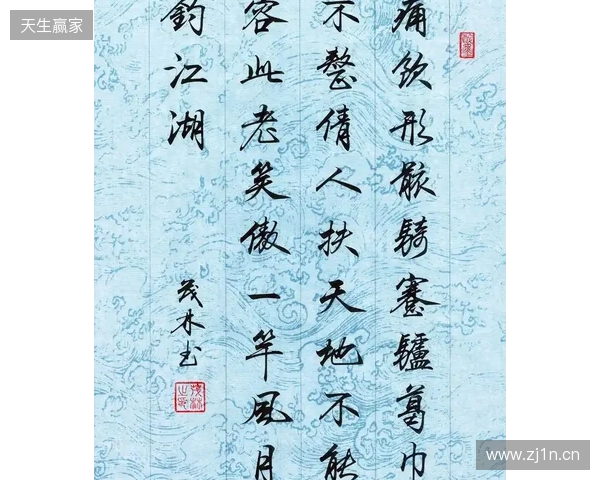 天生赢家
痛飲形骸騎蹇驢葛巾
不整倩人扶天地不能
容此老笑傲一竿風月
釣江湖
茂林书
www.zj1n.cn